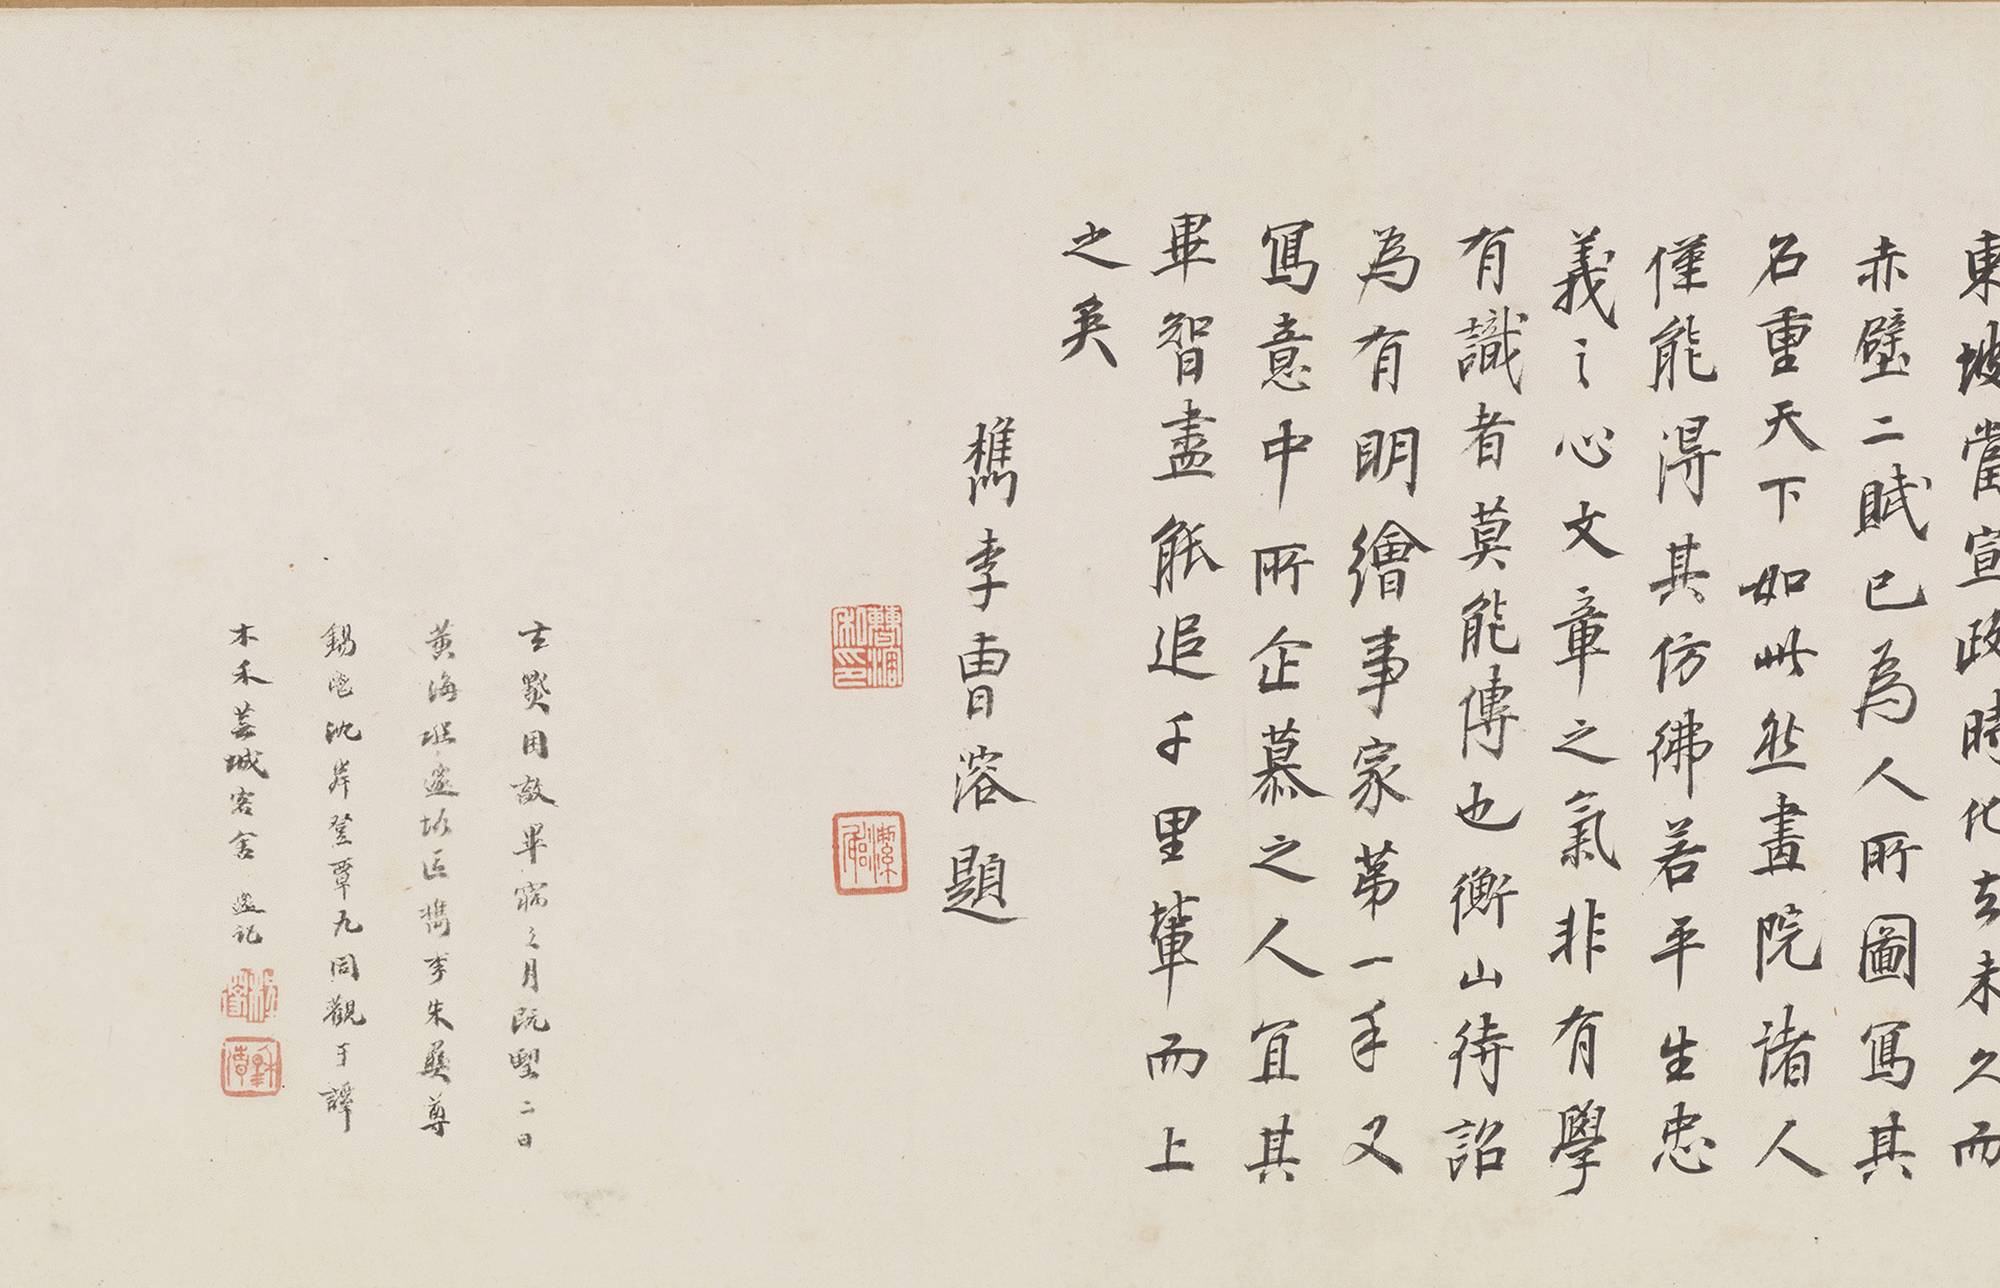 東坡當宣政時化去未久而
赤壁二賦已為人所圖寫其
名重天下如此然畫院諸人
僅能得其仿彿若平生忠
義之心文章之氣非有學
有識者莫能傳也衡山待詔
為有明繪事家第一手又
寫意中所企慕之人宜其
畢智盡能追千里輩而上
之矣
檇李曹溶題
玄黓困敦畢窩之月既朢二日
黃海程邃垢區檇李朱彝尊
錫鬯沈岸登覃九同觀于譯
木禾蕪城客舍 邃記